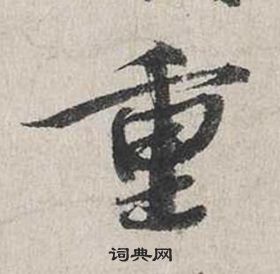 重
词典网